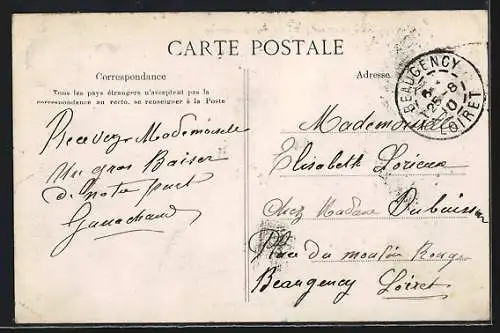 CARTE POSTALE
Correspondance
Tous les pays étrangers n'acceptent pas la
correspondance au recto, se renseigner à la Poste
Recevez Mademoiselle
Un gros Baiser
de notre part
Adresse
BEAUGENCY
25-8
10
LOIRET
Mademoiselle
Elisabeth Lorieux
Chez Madame Dubuisson
Rue du moulin Rouge
Beaugency Loiret